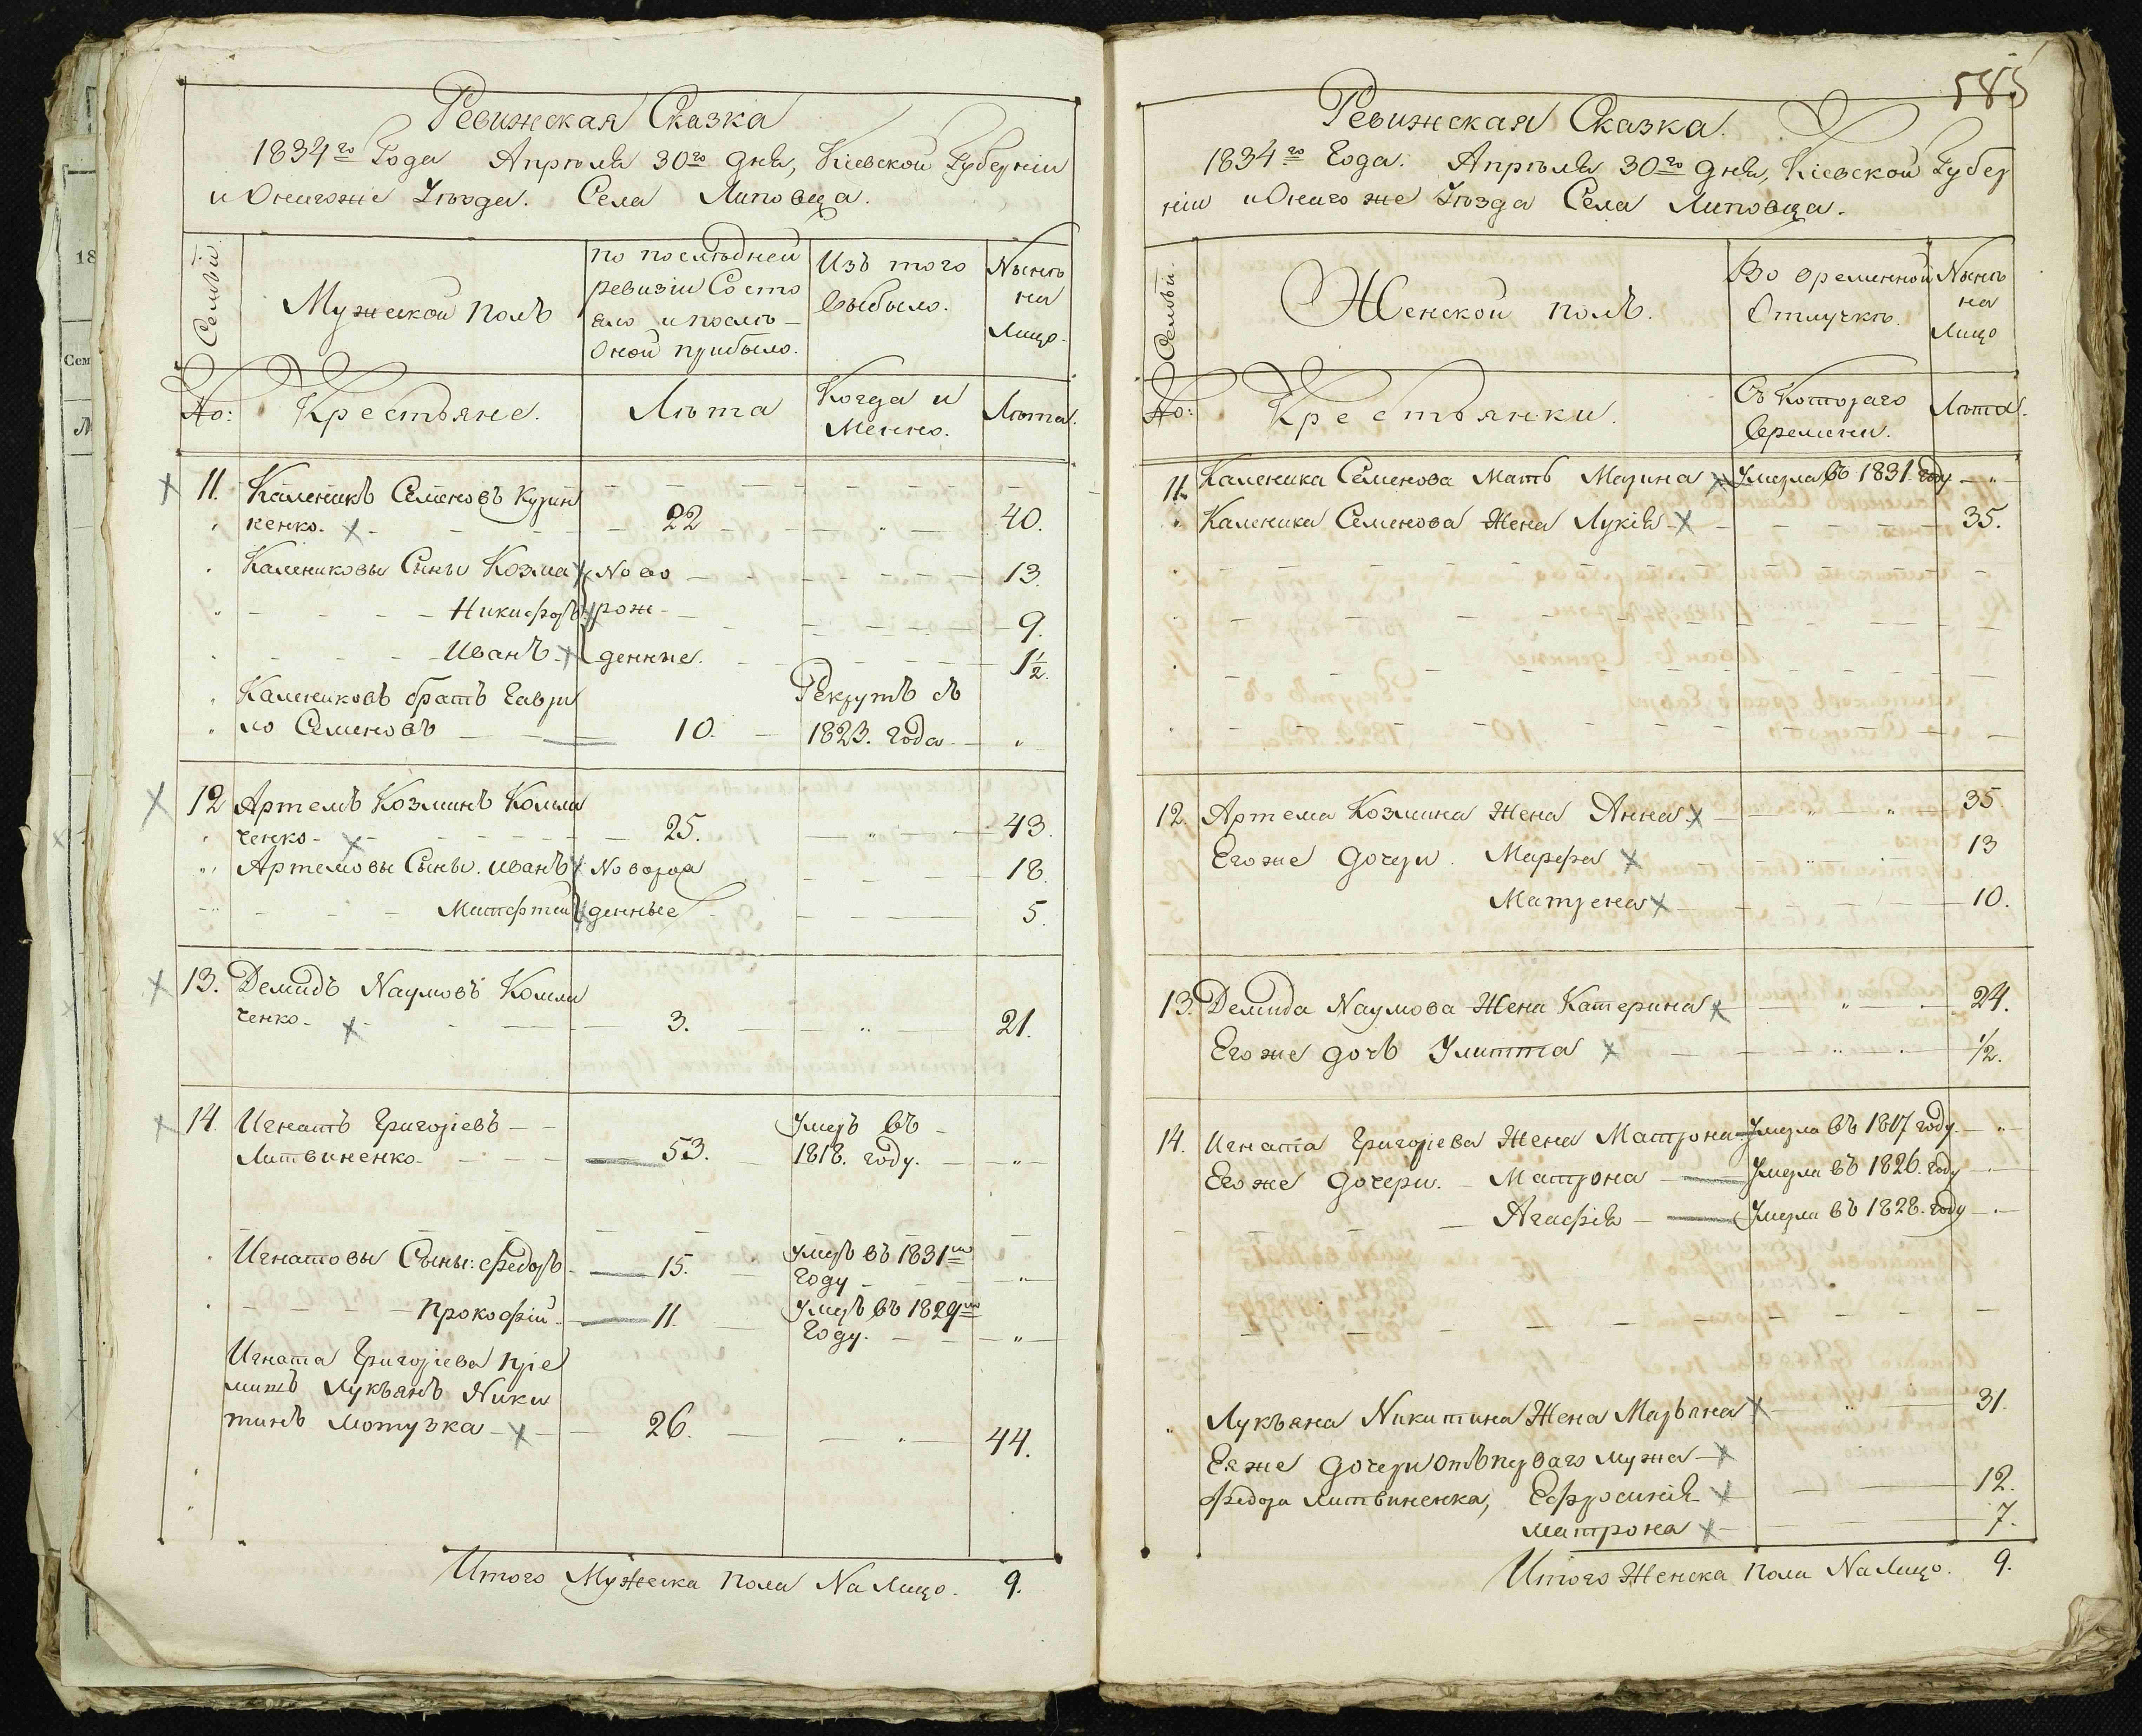 Ревижская Сказка
1834го Года Апрѣля 30го дня, Кіевской Губерніи
и Онагоже Уѣзда. Села Липовца.
Семьи.
Мужеской полъ
по послѣдней
ревизіи Состо
яло и послѣ
Оной прибыло.
Изъ того
выбыло.
Нынѣ
на
Лицо.
No:
Крестьяне.
Лѣта
Когда и
Менно.
Лѣта.
11. Каленикъ Семеновъ Курин
кенко - 22 40.
Калениковы Сыны Козма Ново 13.
Никифоръ рож- 9.
Иванъ денные. 1½.
Калениковъ братъ Гаври Рекрутъ съ
ло Семеновъ 10. 1823. года
12 Артемъ Козминъ Колли
ченко - 25. 43.
Артемовы Сыны. Иванъ Новорож 18.
Матфтей денные 5.
13. Демидъ Наумовъ Колли
ченко - 3. 21.
14. Игнатъ Григоріевъ Умеръ въ
Литвиненко - 53. 1818. году.
Игнатовы Сыны: Федоръ 15. Умеръ въ 1831м
году
Прокофій 11. Умеръ въ 1829м
году.
Игната Григоріева пріе
мышъ Лукъянъ Ники
тинъ Мотузка - 26. 44.
Итого Мужеска пола На Лицо. 9.
585
Ревижская Сказка.
1834го Года. Апрѣля 30го дня, Кіевской Губер
ніи и Онаго же Уѣзда Села Липовца.
Семьи.
Женской полъ.
Во временной
Отлучкѣ.
Нынѣ
на
Лицо
No:
Крестьянки.
Съ Котораго
Времени.
Лѣта.
11. Каленика Семенова Мать Марина Умерла въ 1831. году
Каленика Семенова Жена Лукія 35.
12. Артема Козмина Жена Анна 35
Его же дочери. Марфа 13
Матрена 10.
13. Демида Наумова Жена Катерина 24.
Его же дочь Улитта ½.
14. Игната Григоріева Жена Матрона Умерла въ 1817 году.
Его же дочери. Матрона Умерла въ 1826. году
Агафія Умерла въ 1828. году
Лукъяна Никитина Жена Марьяна 31.
Ея же дочери Отъ перваго мужа
Федора Литвиненка, Ефросинія 12.
Матрона 7.
Итого Женска пола На Лицо. 9.